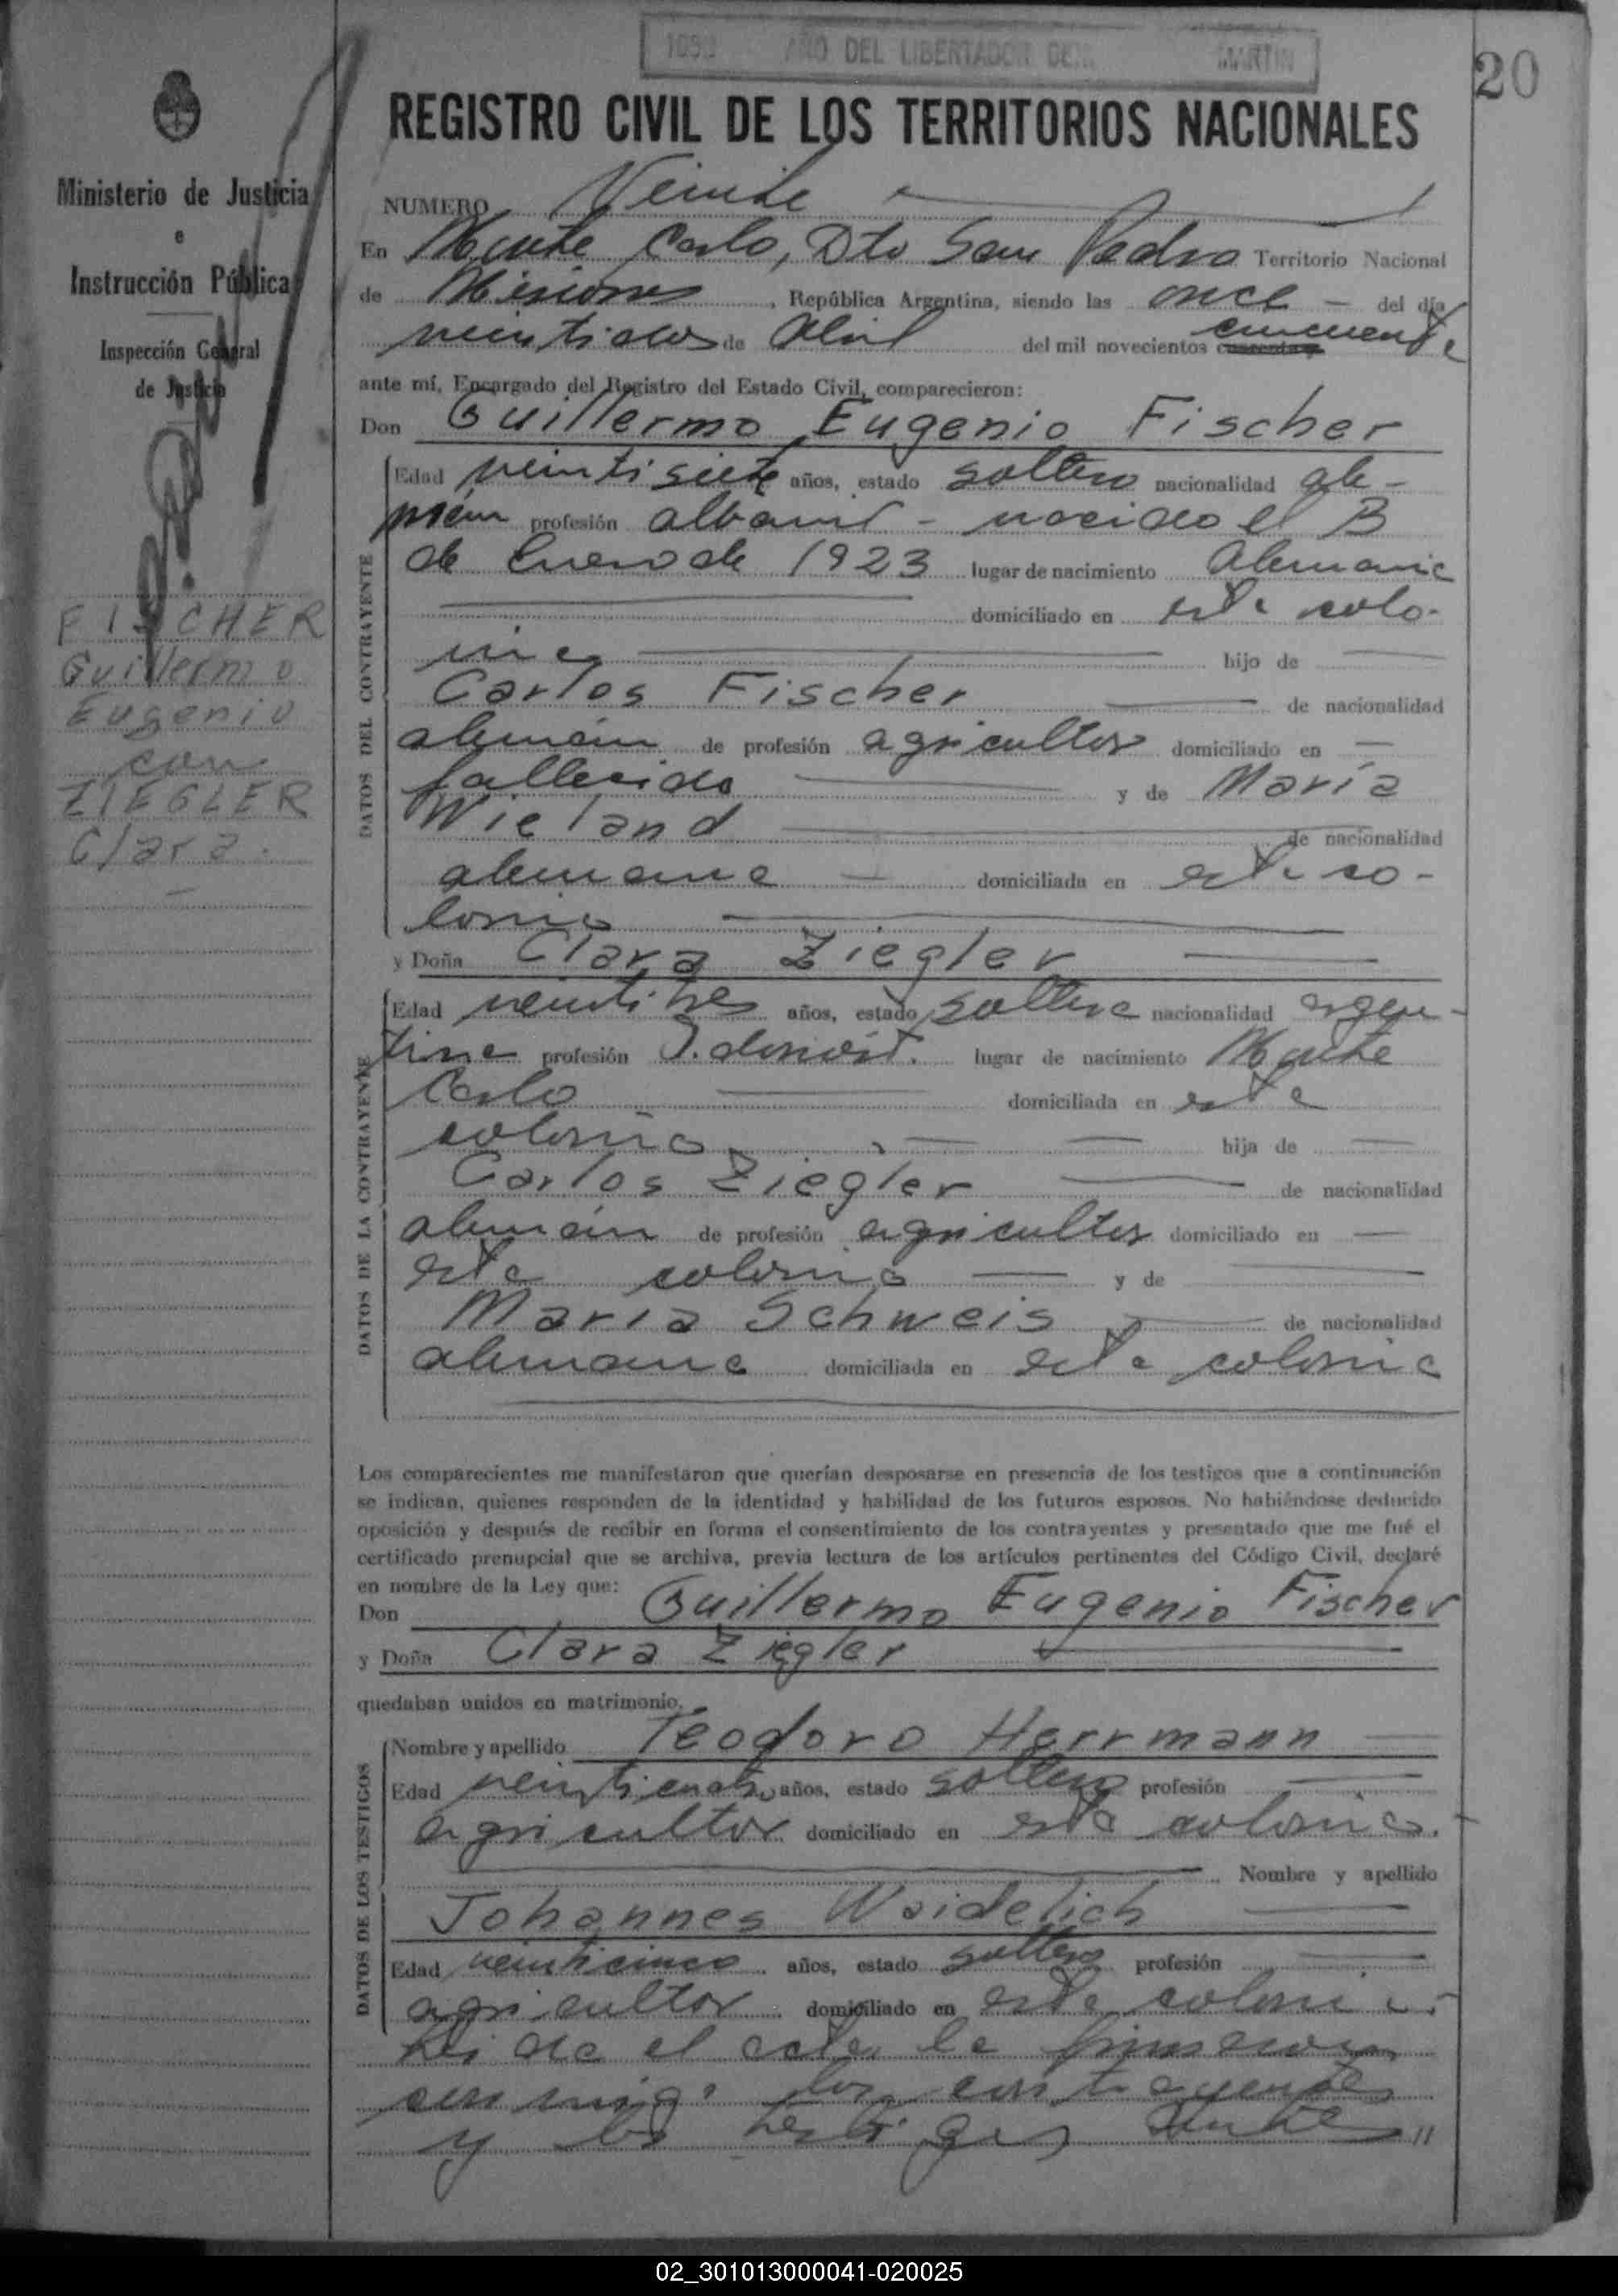 AÑO DEL LIBERTADOR GEN. MARTIN
20
REGISTRO CIVIL DE LOS TERRITORIOS NACIONALES
Ministerio de Justicia
e
Instrucción Pública
Inspección General
de Justicia
FISCHER
Guillermo
Eugenio
con
ZIEGLER
Clara.
NUMERO Veinte
En Monte Carlo, Dto San Pedro Territorio Nacional
de Misiones, República Argentina, siendo las once - del día
veintidos de Abril del mil novecientos cincuenta
ante mí, Encargado del Registro del Estado Civil, comparecieron:
Don Guillermo Eugenio Fischer
DATOS DEL CONTRAYENTE
Edad veintisiete años, estado soltero nacionalidad ale-
mán profesión albanil - nacido el
de Enero de 1923 lugar de nacimiento Alemania
domiciliado en esta colo-
nia hijo de
Carlos Fischer de nacionalidad
alemán de profesión agricultor domiciliado en
fallecido y de María
Wieland de nacionalidad
alemana domiciliada en esta co-
lonia
y Doña Clara Ziegler
DATOS DE LA CONTRAYENTE
Edad veintitres años, estado soltera nacionalidad argen-
tina profesión lugar de nacimiento Monte
Carlo domiciliada en esta
colonia hija de
Carlos Ziegler de nacionalidad
alemán de profesión agricultor domiciliado en
esta colonia y de
Maria Schweis de nacionalidad
alemana domiciliada en esta colonia
Los comparecientes me manifestaron que querían desposarse en presencia de los testigos que a continuación
se indican, quienes responden de la identidad y habilidad de los futuros esposos. No habiéndose deducido
oposición y después de recibir en forma el consentimiento de los contrayentes y presentado que me fué el
certificado prenupcial que se archiva, previa lectura de los artículos pertinentes del Código Civil, declaré
en nombre de la Ley que:
Don Guillermo Eugenio Fischer
y Doña Clara Ziegler
quedaban unidos en matrimonio.
DATOS DE LOS TESTIGOS
Nombre y apellido Teodoro Herrmann
Edad veinticuatro años, estado soltero profesión
agricultor domiciliado en esta colonia.
Nombre y apellido
Johannes Waidelich
Edad veinticinco años, estado soltero profesión
agricultor domiciliado en esta colonia.-
Leida el acta la firmaron
conmigo los contrayentes
y los testigos ante //
02_301013000041-020025